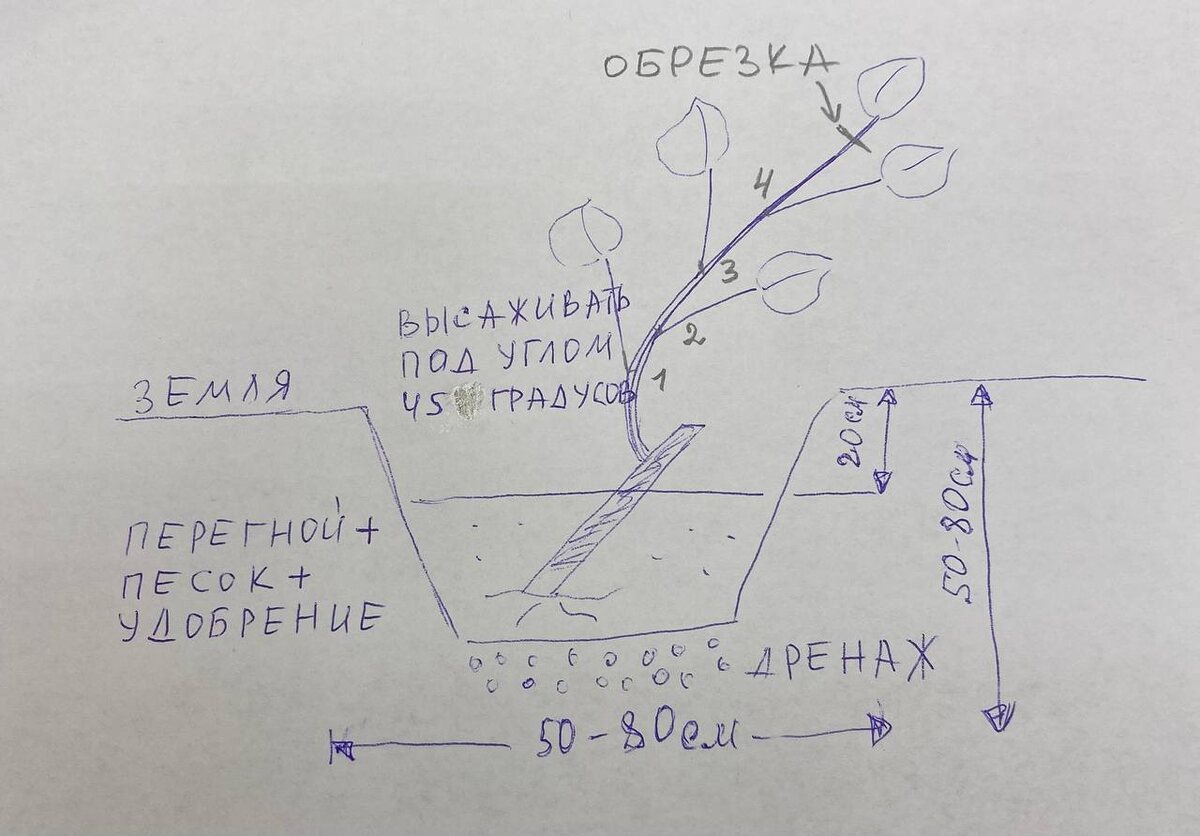 ОБРЕЗКА
4
3
2
1
ВЫСАЖИВАТЬ
ПОД УГЛОМ
45 ГРАДУСОВ
ЗЕМЛЯ
20см
50-80см
ПЕРЕГНОЙ+
ПЕСОК+
УДОБРЕНИЕ
ДРЕНАЖ
50-80см